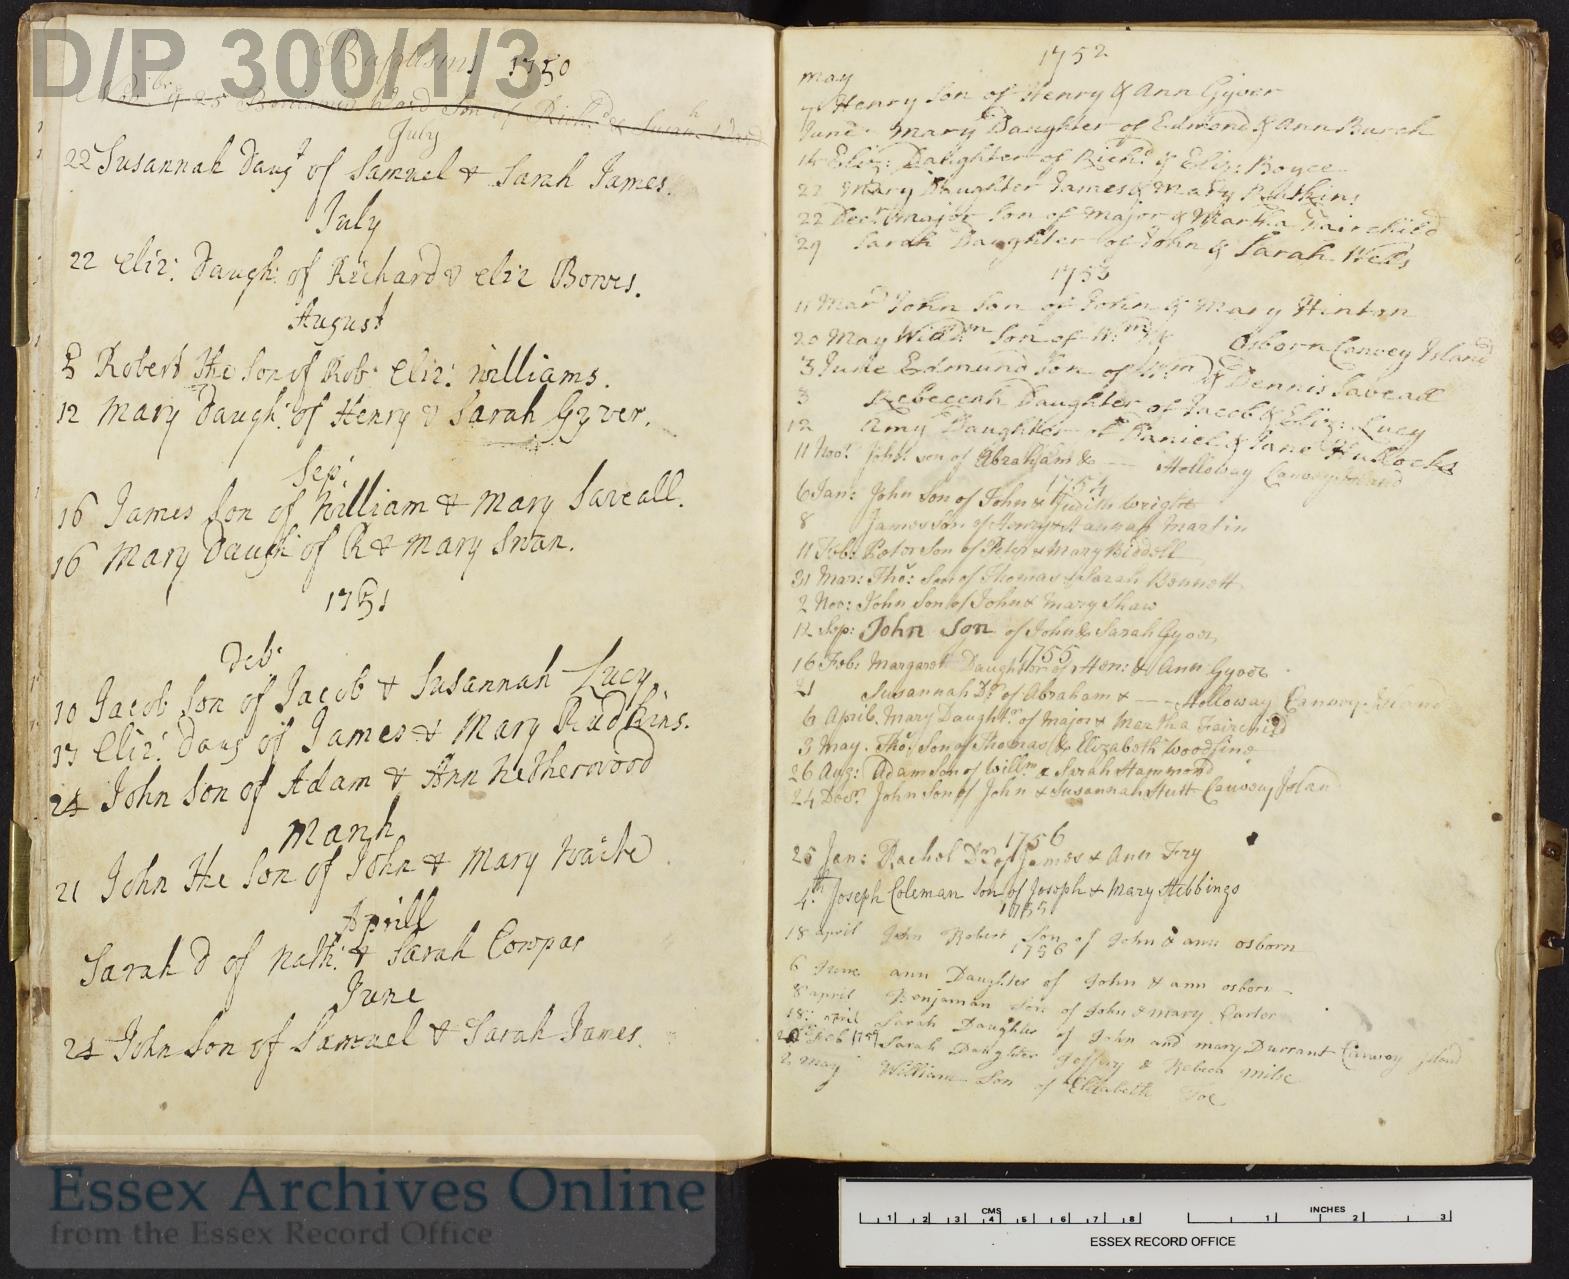 D/P 300/1/3
Baptisms 1750
25 Benjamin Ward Son of Richd & Susanh Ward
July
22 Susannah Daugt of Samuel & Sarah James.
July
22 Eliz: Daugh: of Richard & Eliz Bowes.
August
5 Robert the Son of Rob: Eliz: Williams.
12 Mary Daugh: of Henry & Sarah Gyver.
Sep:
16 James Son of William & Mary Saveall.
16 Mary Daugh: of R & Mary Swan.
1751
Feb:
10 Jacob Son of Jacob & Susannah Lucy.
17 Eliz: Daug of James & Mary Rudkins.
24 John Son of Adam & Ann Netherwood
March
21 John the Son of John & Mary Waite
Aprill
Sarah D of Nath: & Sarah Compas
June
24 John Son of Samuel & Sarah James.
1752
May
7 Henry Son of Henry & Ann Gyver
June Mary Daughter of Edmond & Ann Burch
14 Eliz: Daughter of Richd & Eliz: Boyce
22 Mary Daughter James & Mary Rudkins
22 Decr Major Son of Major & Martha Fairchild
29 Sarah Daughter of John & Sarah Wells
1753
11 Mar John Son of John & Mary Hinton
20 May Willm Son of Wm & Osborn Canvey Island
3 June Edmund Son of Wm & Dennis Saveall
3 Rebeccah Daughter of Jacob & Eliz: Lucy
12 Amy Daughter of Daniel & Jane Hullocks
11 Nov: John son of Abraham & --- Holloway Canvey Island
1754
6 Jan: John Son of John & Judith Wright
8 James Son of Henry & Hannah Martin
11 Feb: Peter Son of Peter & Mary Biddell
31 Mar: Tho: Son of Thomas & Sarah Bennett
2 Nov: John Son of John & Mary Shaw
12 Sep: John Son of John & Sarah Gyver
1755
16 Feb: Margaret Daughter of Hen: & Ann Gyver
21 Susannah Dr of Abraham & --- Holloway Canvey Island
6 April. Mary Daughtr of Major & Martha Fairchild
3 May. Tho: Son of Thomas & Elizabeth Woodfine
26 Aug: Adam Son of Willm & Sarah Hammond
24 Decr John Son of John & Susannah Hutt Canvey Islan
1756
25 Jan: Rachel Dr of James & Ann Fry
4th Joseph Coleman Son of Joseph & Mary Hebbings
1755
18 april John Robert Son of John & ann osborn
1756
6 June ann Daughter of John & ann osborn
8 april Benjaman Son of John & mary Carter
18: april Sarah Daughter of John and mary Durrant Canvey Island
Feb 1759 Sarah Daughter Joffery & Rebeca milse
2 may William Son of Elizabeth Foe
Essex Archives Online
from the Essex Record Office
CMS
1 2 3 4 5 6 7 8
INCHES
1 2 3
ESSEX RECORD OFFICE